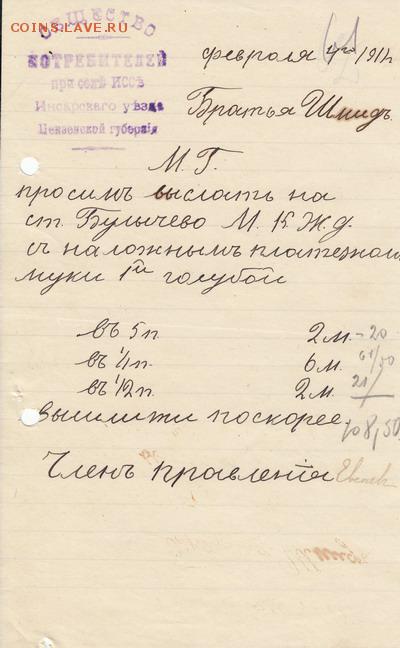 COINS.LAVE.RU
ОБЩЕСТВО
ПОТРЕБИТЕЛЕЙ
при селѣ ИССѢ
Инсарскаго уѣзда
Пензенской губерніи
февраля 4го 1912
Братья Шмидъ.
М. Г.
просимъ выслать на
ст. Булычево М. К. Ж. д.
съ наложнымъ платежом
муки 1й голубой
въ 5 п. 2 м. – 20
въ 1/4 п. 6 м. 61/50
въ 1/2 п. 2 м. 21/
вышлити поскорее.
108,50
Членъ Правленія